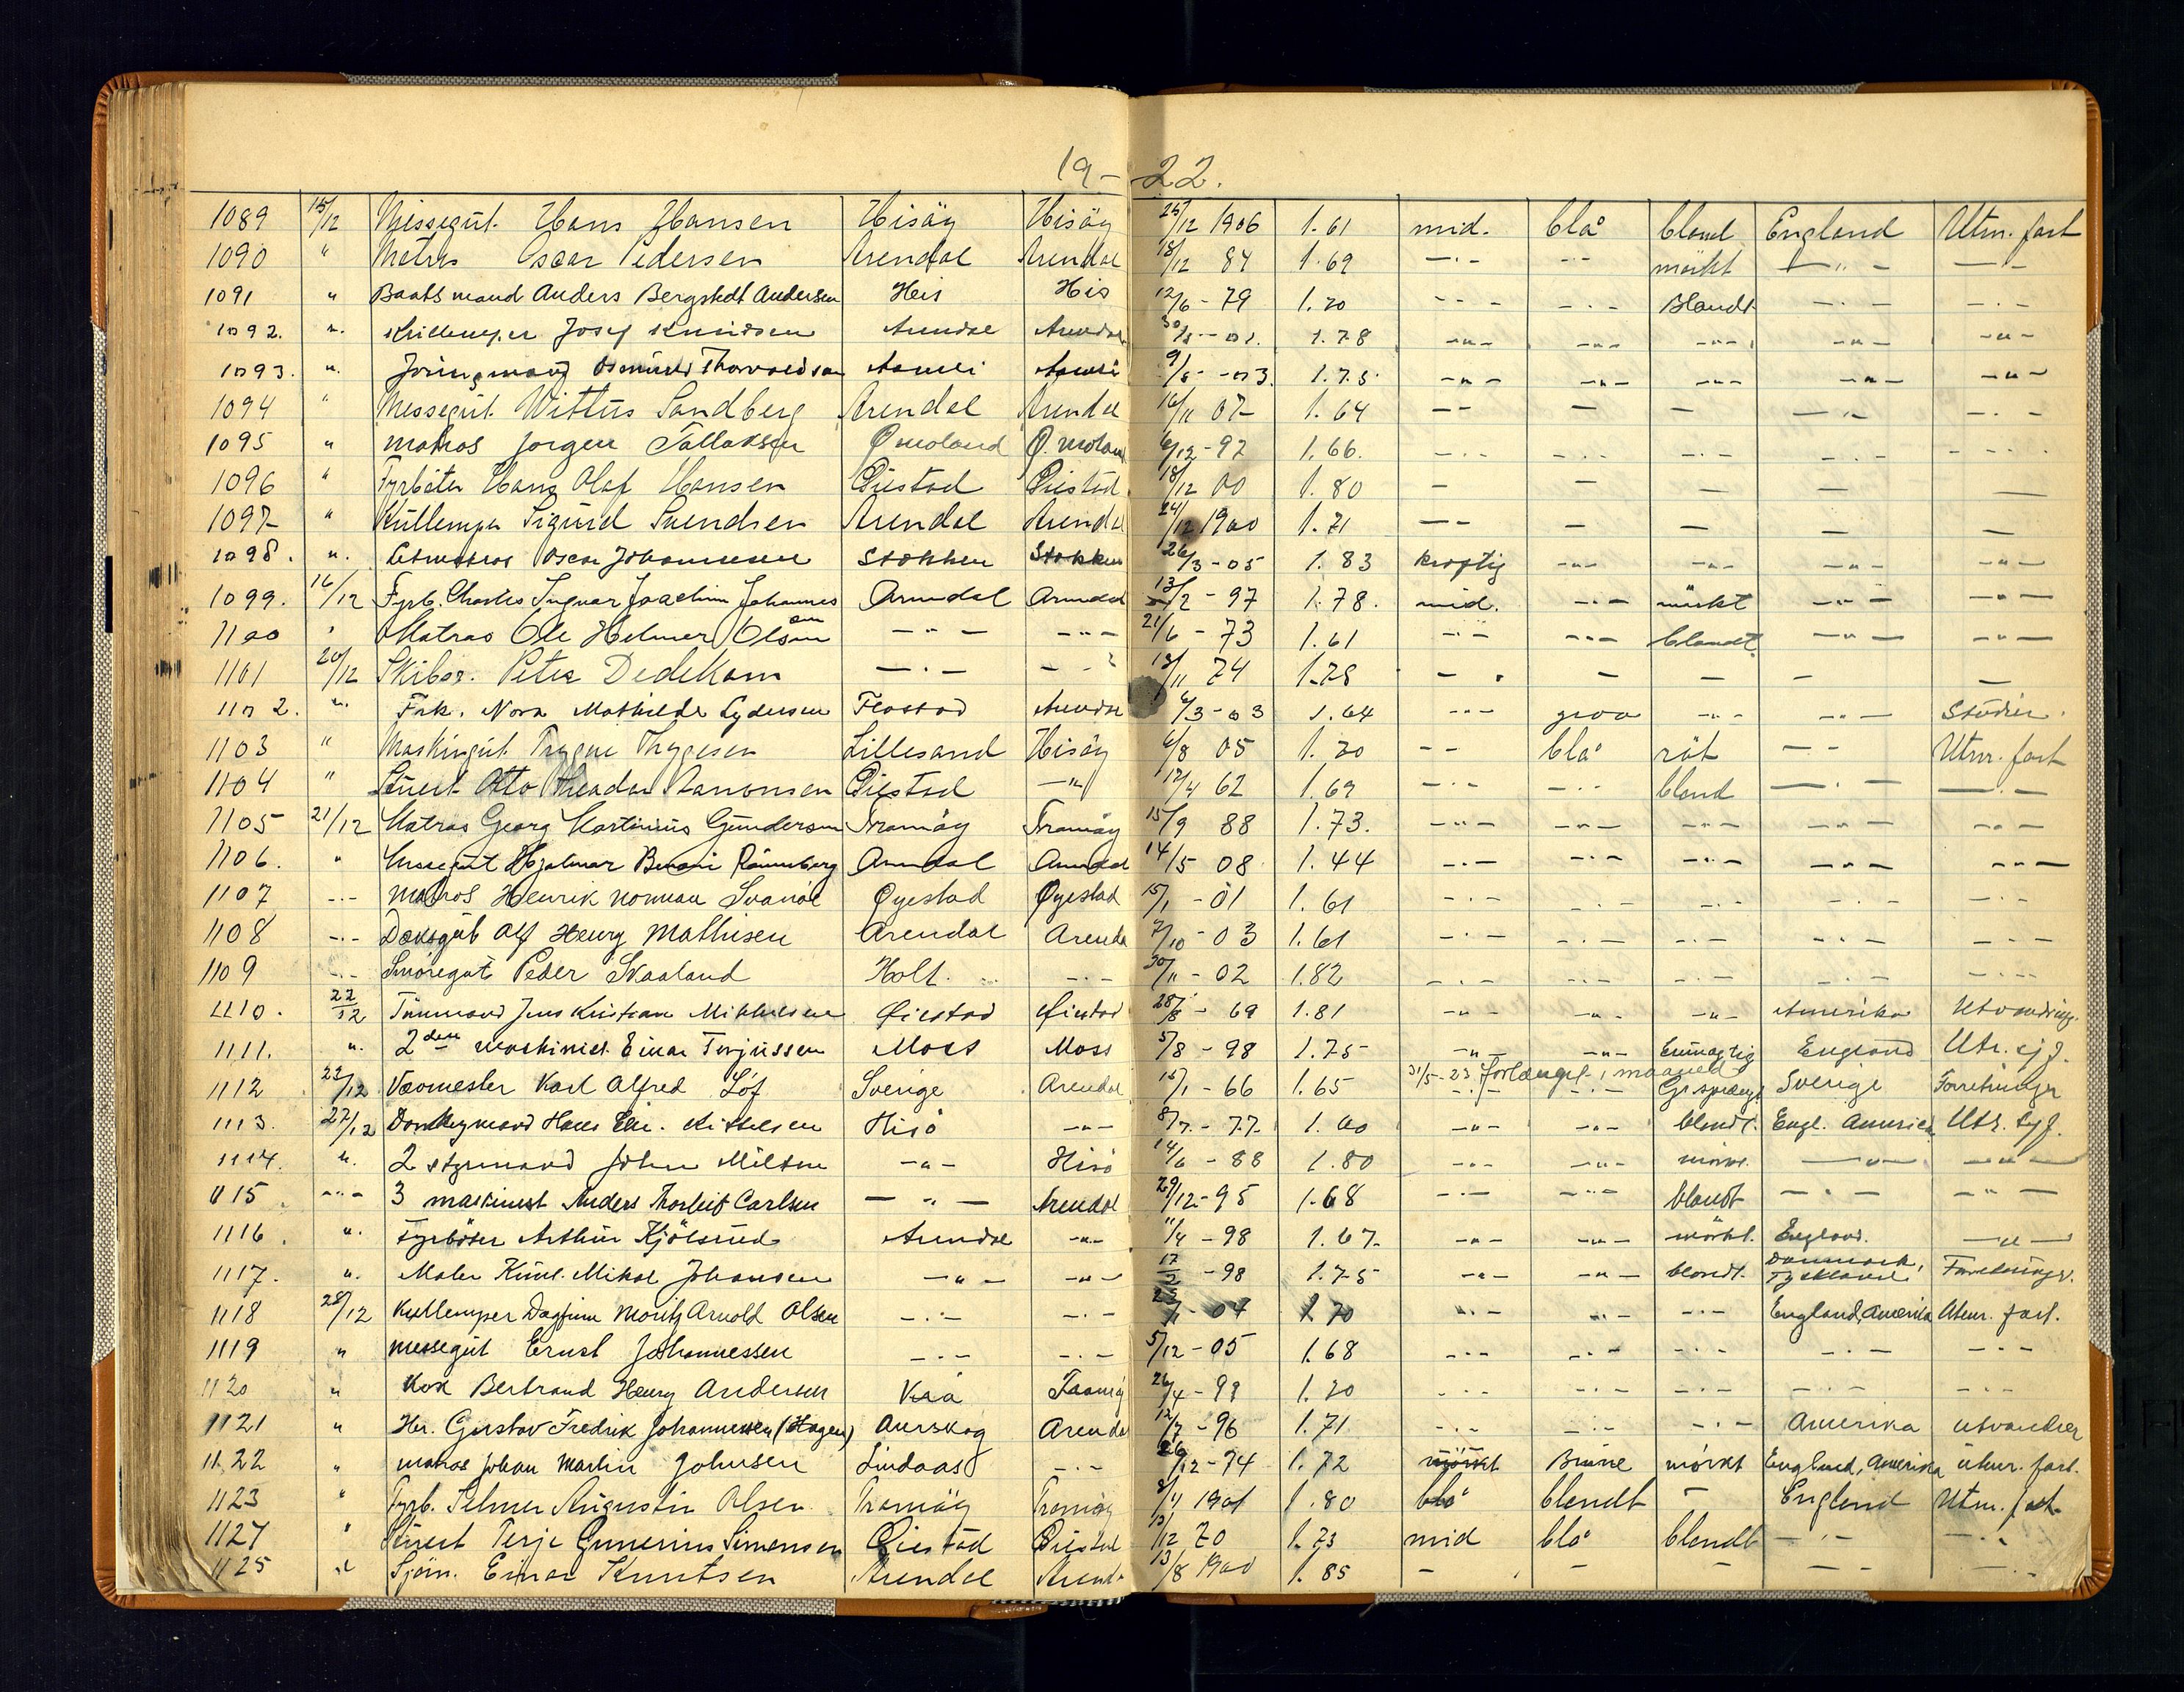 19-22.
1089 15/12 Messegut. Hans Hansen Hisøy Hisøy 25/12 1906 1.61 mid. blå blond England Utm. fart
1090 " Matros Oscar Pedersen Arendal Arendal 18/12 84 1.69 -"- -"- mørkt -"- -"-
1091 " Baatsmand Anders Bergstedt Andersen His His 12/6-79 1.70 -"- -"- Blondt -"- -"-
1092. " Kullemper Josef Knudsen Arendal Arendal 1.78 -"- -"- -"- -"- -"-
1093. " Osmund Thorvaldsen Aamli Aamli 9/5-03. 1.75 -"- -"- -"- -"- -"-
1094 " Messegut. Wittus Sandberg Arendal Arendal 16/11 07 1.64 -"- - - -"- -"-
1095 " matros Jørgen Tallaksen Ø. moland Ø. moland 6/12-97 1.66. -"- -"- -"- -"- -"-
1096 " Fyrbøter Hans Olaf Hansen Øiestad Øiestad 18/12 00 1.80 - - - - -
1097 " Kullemper Sigurd Svendsen Arendal Arendal 24/12 1900 1.71 -- - - - -
1098. " Letmatros Oscar Johannesen Stokken Stokken 26/3-05 1.83 kraftig -"- -"- -"- -"-
1099. 16/12 Fyrb. Charles Ingvar Joachim Johannessen Arendal Arendal 13/2-97 1.78. mid. -"- mørkt -"- -"-
1100 " Matros Ole Helmer Olsen -"- -"- 21/6-73 1.61 -"- -"- blondt -"- -"-
1101 20/12 Skibsr. Peter Dedekam -"- -"- 18/11 74 1.78 - - - - -
1102. " Frk. Nora Mathilde Lydersen Flostad Arendal 6/3-03 1.64 -"- graa -"- -"- Studier.
1103 " Maskingut. Trygve Thygesen Lillesand Hisøy 6/8 05 1.70 -- blå røt -- Utm. fart
1104 " Stuert Otto Theodor Aanonsen Øiestad -"- 17/4 62 1.69 -"- -"- blond -"- -"-
1105 21/12 Matros Georg Martinius Gundersen Tromøy Tromøy 15/9 88 1.73. -"- -"- -"- -"- -"-
1106. " Messegut Hjalmar Rønneberg Arendal Arendal 14/5 08 1.44 -"- -"- -"- -"- -"-
1107 -"- matros Henrik Norman Svanøe Øyestad Øyestad 15/1-01 1.61 -"- -"- -"- -"- -"-
1108 -"- Dæksgut Alf Henry Mathisen Arendal Arendal 7/10-03 1.61 -"- -"- -"- -"- -"-
1109 -"- Smøregut Peder Skaaland Holt. -"- 30/11-02 1.82 -"- -"- -"- -"- -"-
1110. 22/12 Tømmand Jens Kristian Mikkelsen Øiestad Øiestad 28/8-69 1.81 -"- -"- -"- Amerika Utvandring.
1111. " 2den maskinist Einar Terjussen Moss Moss 5/8-98 1.75 -"- -"- England Utr. sjf.
31/5-23 forlænget 1 maaned
1112 23/12 Karl Alfred Löf Sverige Arendal 15/1-66 1.65 -"- -"- Gr. sprængt Sverige Forretninger
1113. 27/12 Donkeymand Hans Kittelsen Hisö -"- 8/7-77 1.60 -"- -"- blondt. Engl. America Utr. sjf.
1114. " 2 styrmand John Milton -"- Hisö 14/6-88 1.80 -"- -"- mörkt. -"- -"-
1115 -"- 3 maskinist Anders Torleif Carlsen -"- Arendal 29/12-95 1.68 -"- -"- blondt -"- -"-
1116. " Fyrbøter Arthur Kjølsrud Arendal -"- 11/4-98 1.67. -"- -"- mörkt. England. -"-
1117. " Maler Mikal Johansen -"- -"- 17/2-98 1.75 -"- -"- blondt. Danmark, Tyskland Forretninger.
1118 28/12 Kullemper Dagfinn Moritz Arnold Olsen -"- -"- 04 1.70 -"- -"- -"- England, Amerika Utenr. fart.
1119 " messegut Ernst Johannessen -"- -"- 5/12-05 1.68 -"- -"- -"- -"- -"-
1120 " Kok Bertrand Henry Andersen Tromøy 1.70 -"- -"- -"- -"- -"-
1121 " Hr. Gustav Fredrik Johannessen (Hagen) Aurskog Arendal 12/7-96 1.71 -"- -"- -"- Amerika utvandrer
1122 " matros Johan Martin Johnsen Lindaas -"- 26/12-74 1.72 mörkt Brune mörkt England, Amerika utenr. fart.
1123 " Fyrb. Selmer Augustin Olsen Tromøy Tromøy 8/4 1901 1.80 blå blondt - England Utm. fart
1124 " Stuert Terje Gunerius Simonsen Øiestad Øiestad 70 1.73 mid blå blondt -"- -"-
1125 " Sjøm. Einar Knutsen Arendal Arendal 13/8 1900 1.85 - - - - -